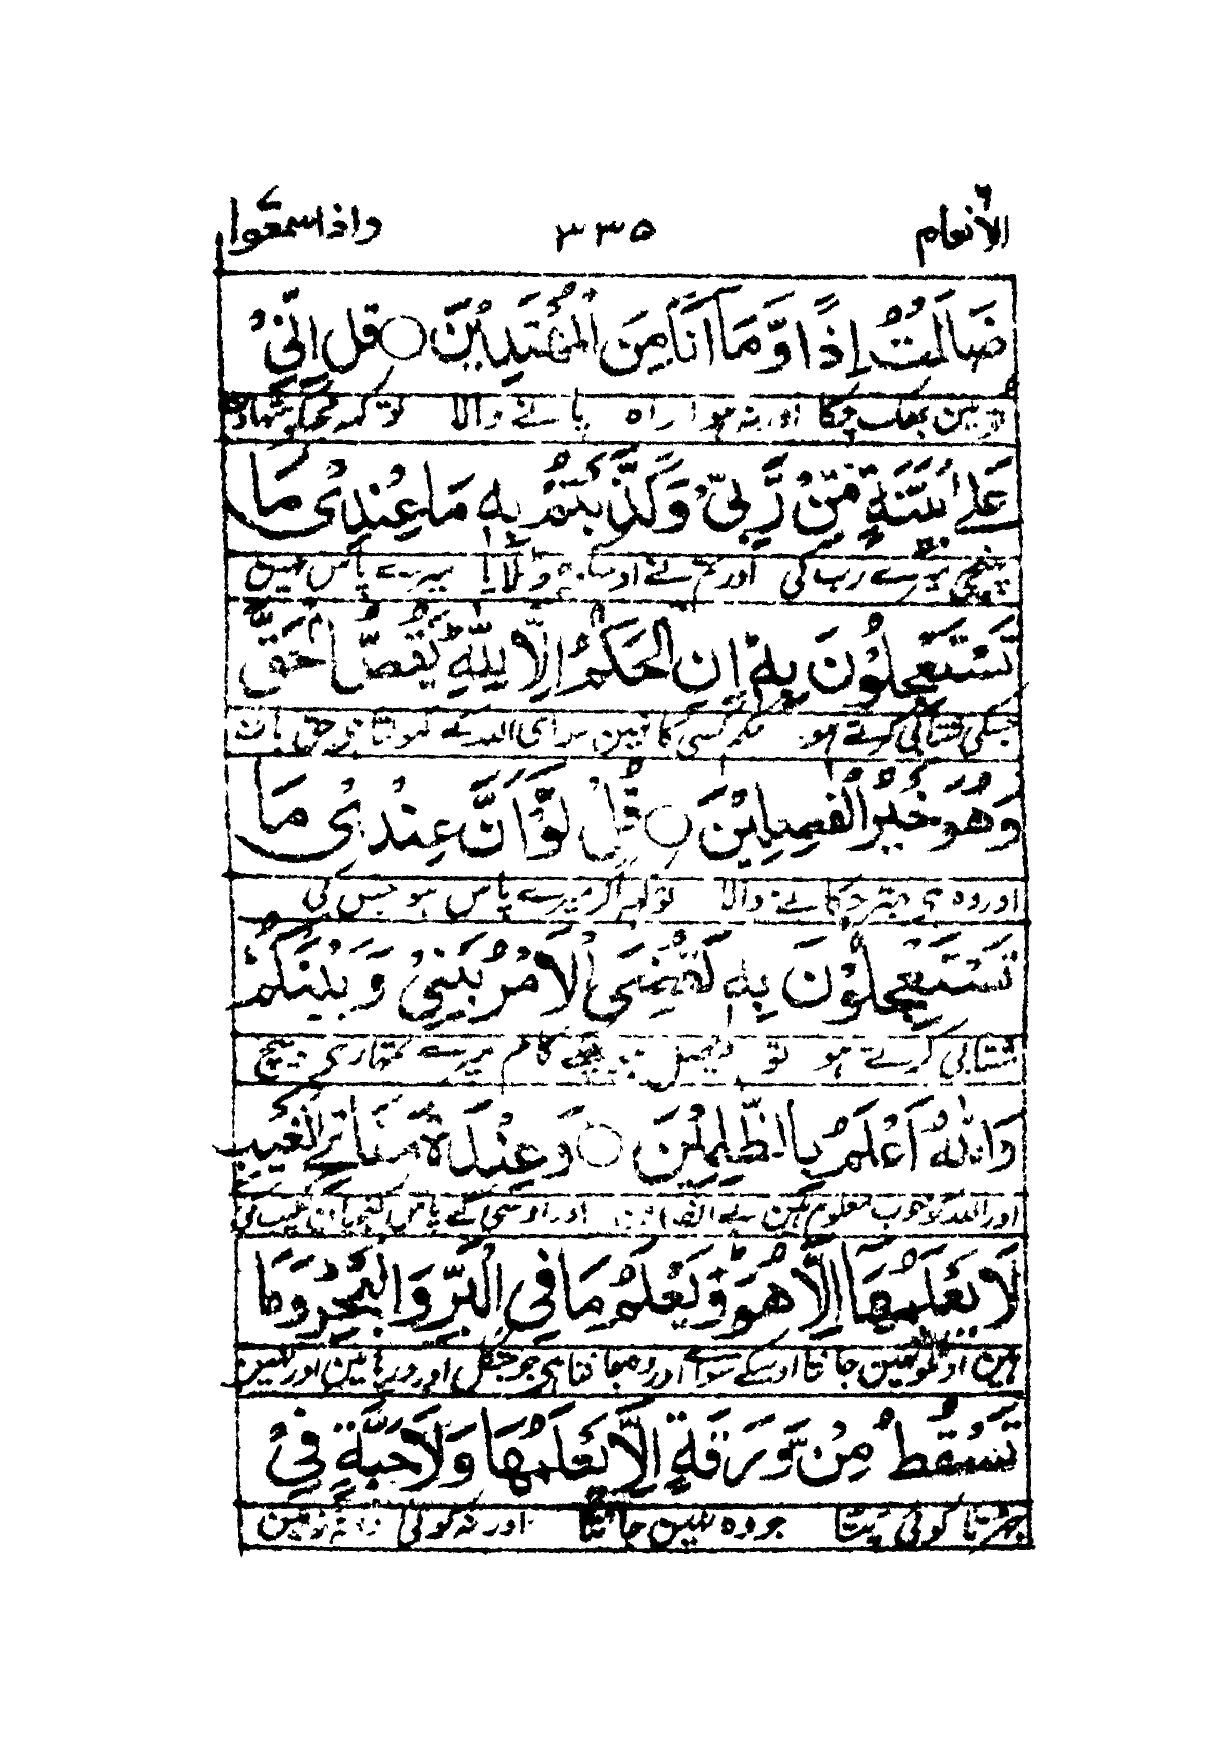 الأنعام ٦ ٣٣٥ واذاسمعوا ٧
ضَلَلْتُ اِذًا وَّمَاۤ اَنَا مِنَ الْمُهْتَدِيْنَ ○ قُلْ اِنِّيْ
تو مین بھک چکا اور نہ ہوا راہ پانے والا تو کہہ مجھکو شہادت
عَلٰى بَيِّنَةٍ مِّنْ رَّبِّيْ وَكَذَّبْتُمْ بِهٖ مَا عِنْدِيْ مَا
پہنچی میرے رب کی اور تم نے اوسکو جھٹلایا میرے پاس نہین
تَسْتَعْجِلُوْنَ بِهٖ اِنِ الْحُكْمُ اِلَّا لِلّٰهِ يَقُصُّ الْحَقَّ
جسکی شتابی کرتے ہو حکم کسی کا نہین سوای اللہ کے کھولتا ہو حق بات
وَهُوَ خَيْرُ الْفٰصِلِيْنَ ○ قُلْ لَّوْ اَنَّ عِنْدِيْ مَا
اور وہ ہی بہتر چکانے والا تو کہہ اگر میرے پاس ہو جس کی
تَسْتَعْجِلُوْنَ بِهٖ لَقُضِيَ الْاَمْرُ بَيْنِيْ وَبَيْنَكُمْ
شتابی کرتے ہو تو فیصل ہو چکے کام میرے تمہاری بیچ
وَاللّٰهُ اَعْلَمُ بِالظّٰلِمِيْنَ ○ وَعِنْدَهٗ مَفَاتِحُ الْغَيْبِ
اور اللہ کو خوب معلوم ہین بے انصاف اور اوسی کے پاس کنجیان غیب کی
لَا يَعْلَمُهَاۤ اِلَّا هُوَ وَيَعْلَمُ مَا فِي الْبَرِّ وَالْبَحْرِ وَمَا
ہین اونکو نہین جانتا اوسکے سواے اور وہ جانتا ہی جو جنگل اور دریا مین اور نہین
تَسْقُطُ مِنْ وَّرَقَةٍ اِلَّا يَعْلَمُهَا وَلَا حَبَّةٍ فِيْ
جھڑتا کوئی پتا جو وہ نہین جانتا اور نہ کوئی دانہ زمین